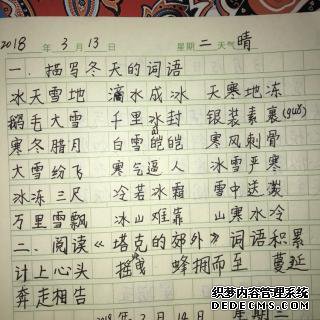 2018 年 3 月 13 日 星期 二 天气 晴
一．描写冬天的词语
冰天雪地 滴水成冰 天寒地冻
鹅毛大雪 千里冰封 银装素裹(guǒ)
寒冬腊月 白雪皑皑 寒风刺骨
大雪纷飞 寒气逼人 冰雪严寒
冰冻三尺 冷若冰霜 雪中送炭
万里雪飘 冰山难靠 山寒水冷
二、阅读《塔克的郊外》词语积累
计上心头 摇曳 蜂拥而至 蔓延
奔走相告
2018 年 3 月 14 日 星期